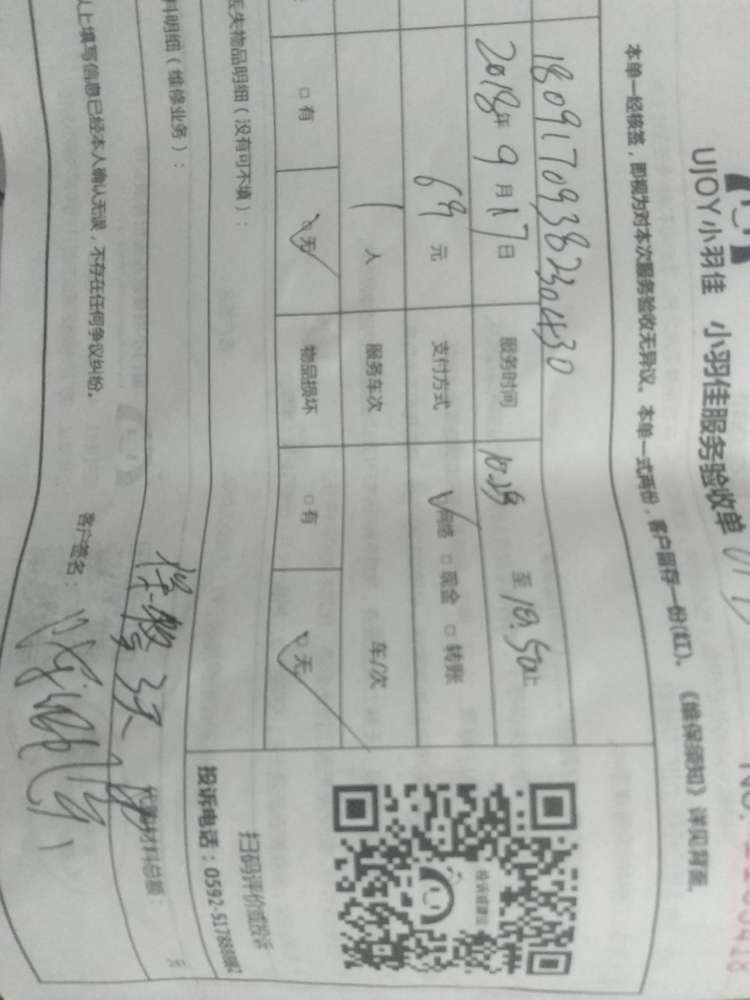 UJOY小羽佳 小羽佳服务验收单
本单一经核签，即视为对本次服务验收无异议。本单一式两份，客户留存一份(红)。《维保须知》详见背面。
18091709382304430
2018年9月17日 服务时间 至10.50止
69元 支付方式 ☑网络 □现金 □转账
1人 服务车次 车/次
□有 ☑无 物品损坏 □有 ☑无
丢失物品明细（没有可不填）：
扫码评价或投诉
料明细（维修业务）：
材料总额： 元
以上填写信息已经本人确认无误，不存在任何争议纠纷。 客户签名：